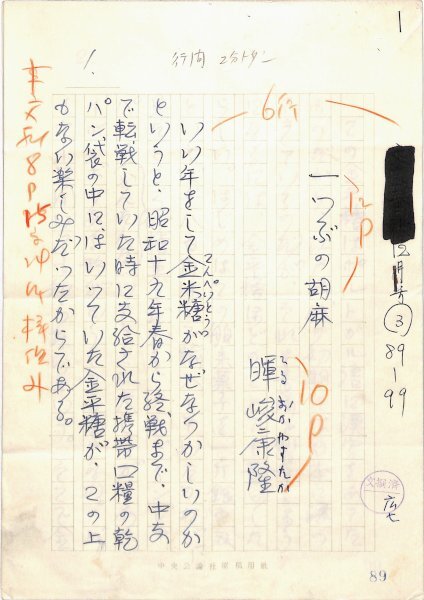 1
12月号 ③ 89-99
6行
12P
一つぶの胡麻
10P
てるおかやすたか
暉峻康隆
行間 2分トタン
1.
いい年をして金米糖がなぜなつかしいのか
こんぺいとう
というと、昭和十九年春から終戦まで、中支
で転戦していた時に支給された携帯口糧の乾
パン袋の中にはいっていた金平糖が、この上
もない楽しみだったからである。
済
中央公論社原稿用紙
89